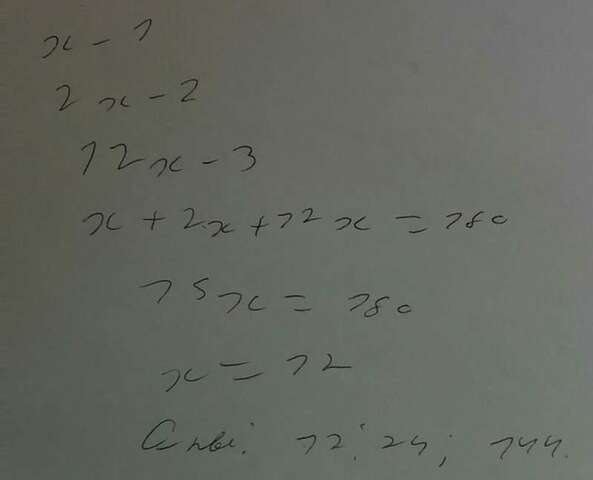 x - 1
2x - 2
12x - 3
x + 2x + 12x = 180
15x = 180
x = 12
Ответ: 12; 24; 144.